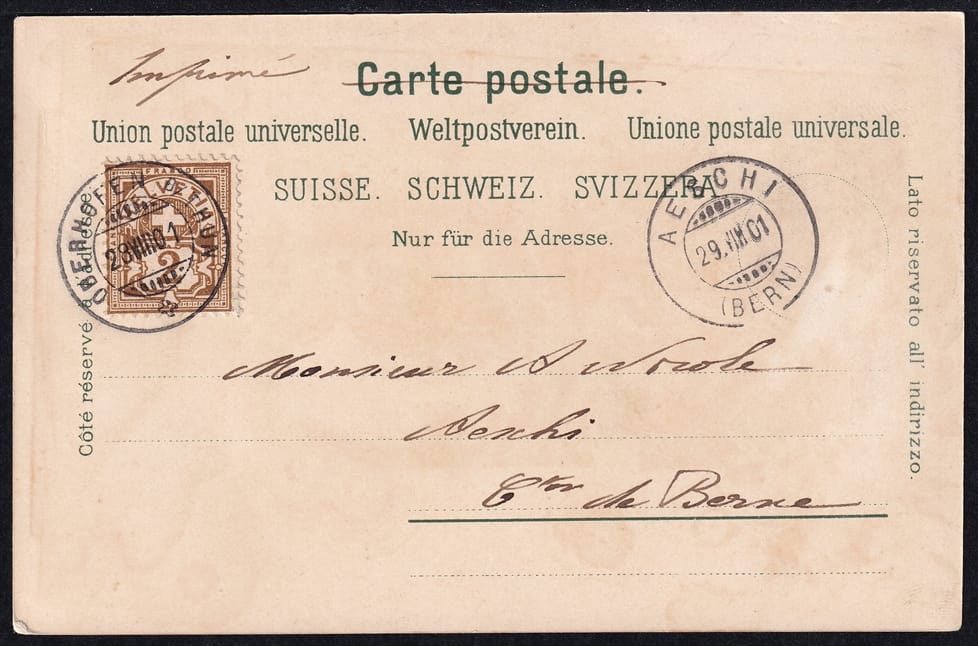 Imprimé Carte postale.
Union postale universelle. Weltpostverein. Unione postale universale.
SUISSE. SCHWEIZ. SVIZZERA
Nur für die Adresse.
Côté réservé à l'adresse.
Lato riservato all' indirizzo.
FRANCO
2
OBERHOFEN
28.VIII.01
AESCHI
29.VIII.01
(BERN)
Monsieur A
Aeschi
Cton de Berne